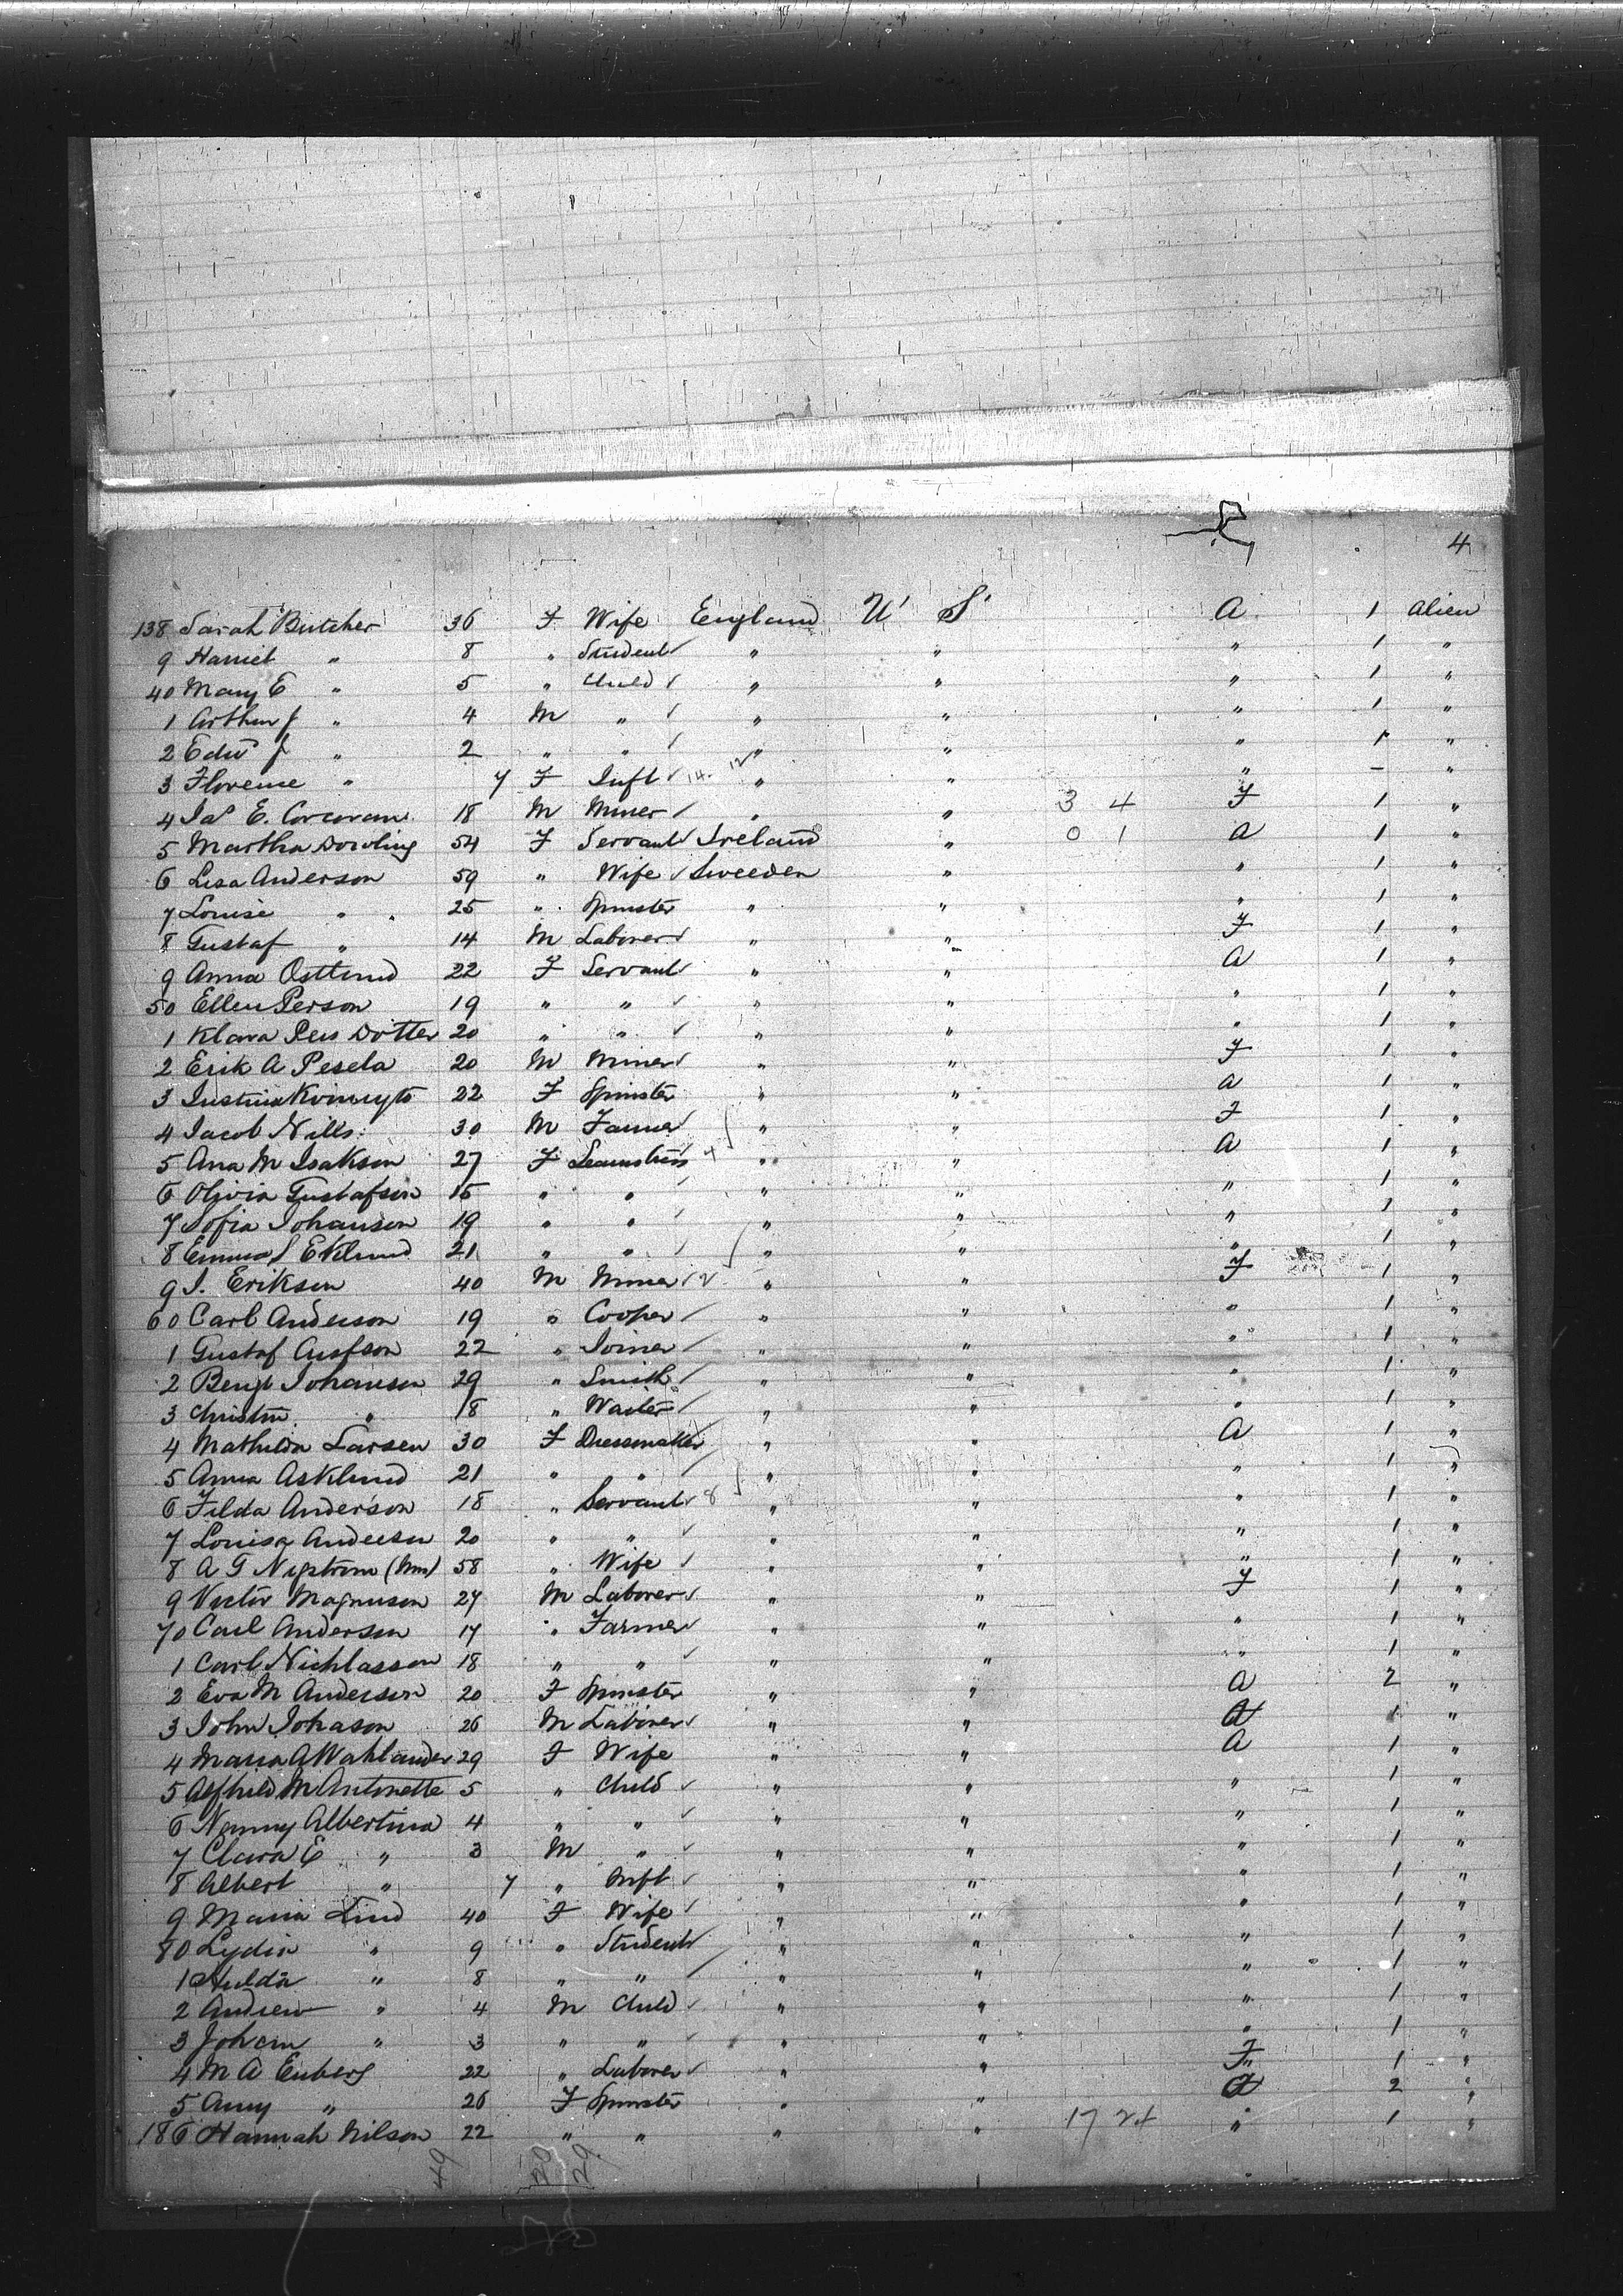 4
138 Sarah Butcher 36 F Wife England U' S' A 1 Alien
9 Harriet " 8 " Student " " " 1 "
40 Mary E " 5 " Child " " " 1 "
1 Arthur J " 4 M " " " " 1 "
2 Edw J " 2 " " " " " 1 "
3 Florence " 7 F Inft 14. 12 " " " - "
4 Jas E. Corcoran 18 M Miner " " 3 4 F 1 "
5 Martha Dowling 54 F Servant Ireland " 0 1 A 1 "
6 Lisa Anderson 59 " Wife Sweeden " " 1 "
7 Louise " 25 " Spinster " " " 1 "
8 Gustaf " 14 M Laborer " " F 1 "
9 Anna Ostlund 22 F Servant " " A 1 "
50 Ellen Person 19 " " " " " 1 "
1 Klara Pers Dotter 20 " " " " " 1 "
2 Erik A Pesela 20 M Miner " " F 1 "
3 22 F Spinster " " A 1 "
4 Jacob Nills 30 M Farmer " " F 1 "
5 Ana M Isakson 27 F Seamstress 4 " " A 1 "
6 Olivia Gustafson 15 " " " " " 1 "
7 Sofia Johanson 19 " " " " " 1 "
8 Emma S Eklund 21 " " " " " 1 "
9 J. Erikson 40 M Miner 12 " " F 1 "
60 Carl Anderson 19 " Cooper " " " 1 "
1 Gustaf Gusfson 22 " Joiner " " " 1 "
2 Bengt Johanson 29 " Smith " " " 1 "
3 " 18 " Waiter " " " 1 "
4 Mathilda Larsen 30 F Dressmaker " " A 1 "
5 Anna Asklund 21 " " " " " 1 "
6 Filda Anderson 18 " Servant 8 " " " 1 "
7 Louisa Anderson 20 " " " " " 1 "
8 A G Nystrom (Mrs) 58 " Wife " " " 1 "
9 Victor Magnuson 27 M Laborer " " F 1 "
70 Carl Anderson 17 " Farmer " " " 1 "
1 Carl Nichlasson 18 " " " " " 1 "
2 Eva M Anderson 20 F Spinster " " A 2 "
3 John Johason 26 M Laborer " " 1 "
4 Maria A Wahlander 29 F Wife " " A 1 "
5 Alfhild M Antonette 5 " Child " " " 1 "
6 Nanny Albertina 4 " " " " " 1 "
7 Clara E " 3 M " " " " 1 "
8 Albert " 7 " Inft " " " 1 "
9 Maria Lind 40 F Wife " " " 1 "
80 Lydia " 9 " Student " " " 1 "
1 Hulda " 8 " " " " " 1 "
2 Andrew " 4 M Child " " " 1 "
3 Johan " 3 " " " " " 1 "
4 M A Enberg 22 " Laborer " " F 1 "
5 Amy " 26 F Spinster " " A 2 "
186 Hannah Nilson 22 " " " " 17 24 " 1 "
49 20 29